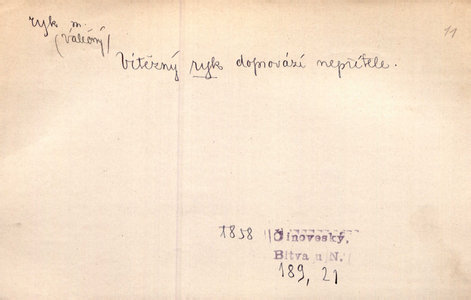 ryk m.
(válečný)
11
Vítězný ryk doprovází nepřítele.
1858 Činoveský.
Bitva u N.
189, 21